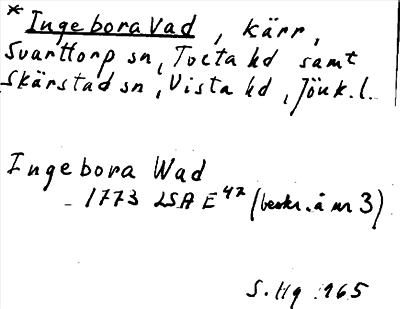 * Ingebora Vad, kärr,
Svarttorp sn, Tveta hd samt
Skärstad sn, Vista hd, Jönk.l.
Ingebora Wad
- 1773 LSA E47 (beskr. å nr 3)
S. Hg 1965